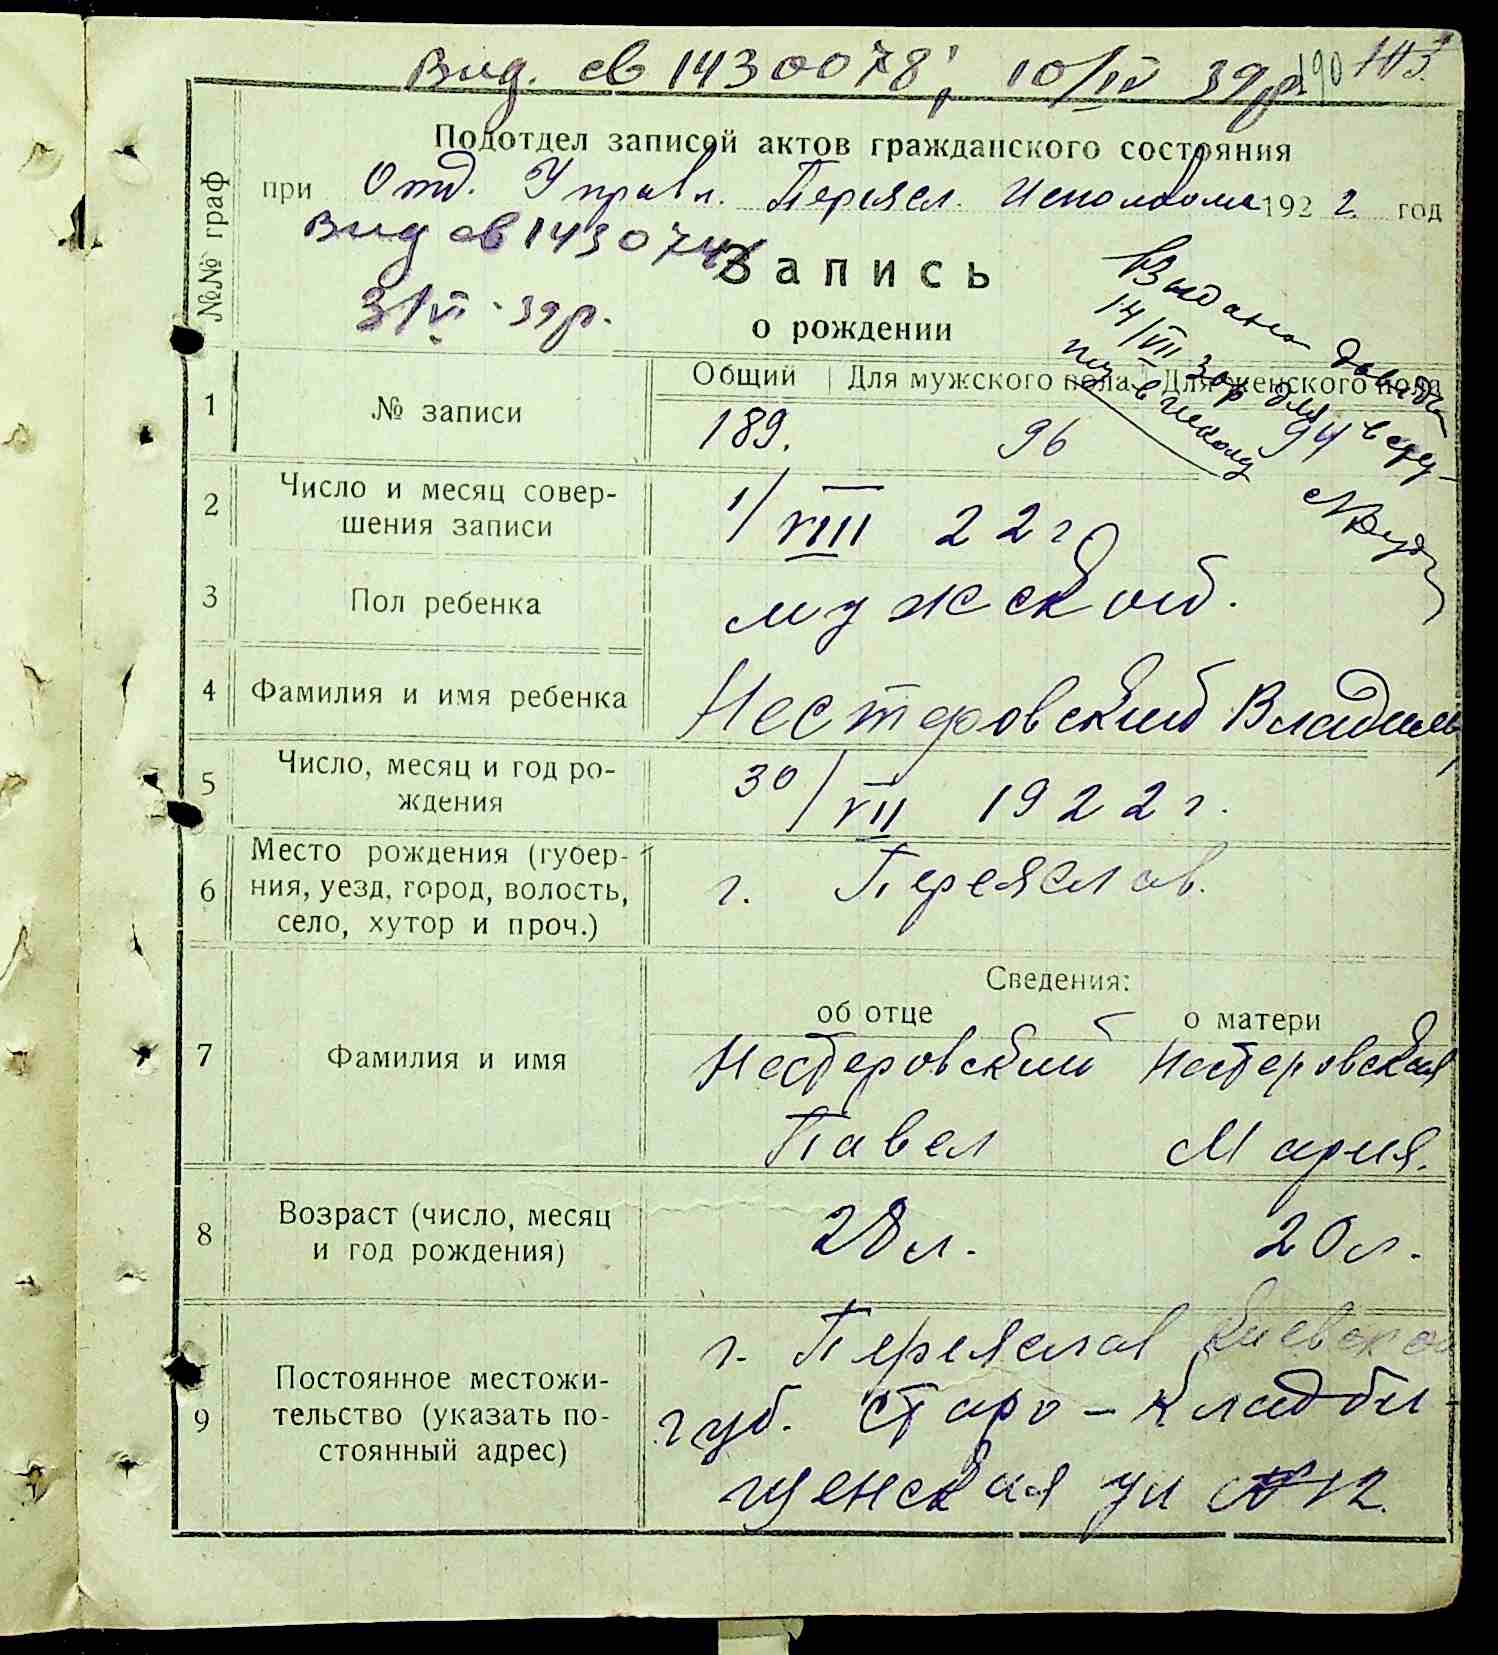 Вид. св 1430078, 10/IV 39р. 190
Подотдел записей актов гражданского состояния
при Отд. Управл. Переясл. Исполкома 1922 год
Вид св 1430744
3/VI-39р.
Запись
о рождении
Выдана
14/VII 39р для
в школу
№№ граф
Общий | Для мужского пола | Для женского пола
1 № записи 189. 96 94
2 Число и месяц совер-
шения записи 1/VIII 22 г
3 Пол ребенка мужской.
4 Фамилия и имя ребенка Нестеровский Владимир
5 Число, месяц и год ро-
ждения 30/VII 1922 г.
6 Место рождения (губер-
ния, уезд, город, волость,
село, хутор и проч.) г. Переяслав.
Сведения:
об отце о матери
7 Фамилия и имя Нестеровский Нестеровская
Павел Мария.
8 Возраст (число, месяц
и год рождения) 28 л. 20 л.
г. Переяслав Киевской
9 Постоянное местожи-
тельство (указать по-
стоянный адрес) губ. Старо-Кладби-
щенская ул №12.